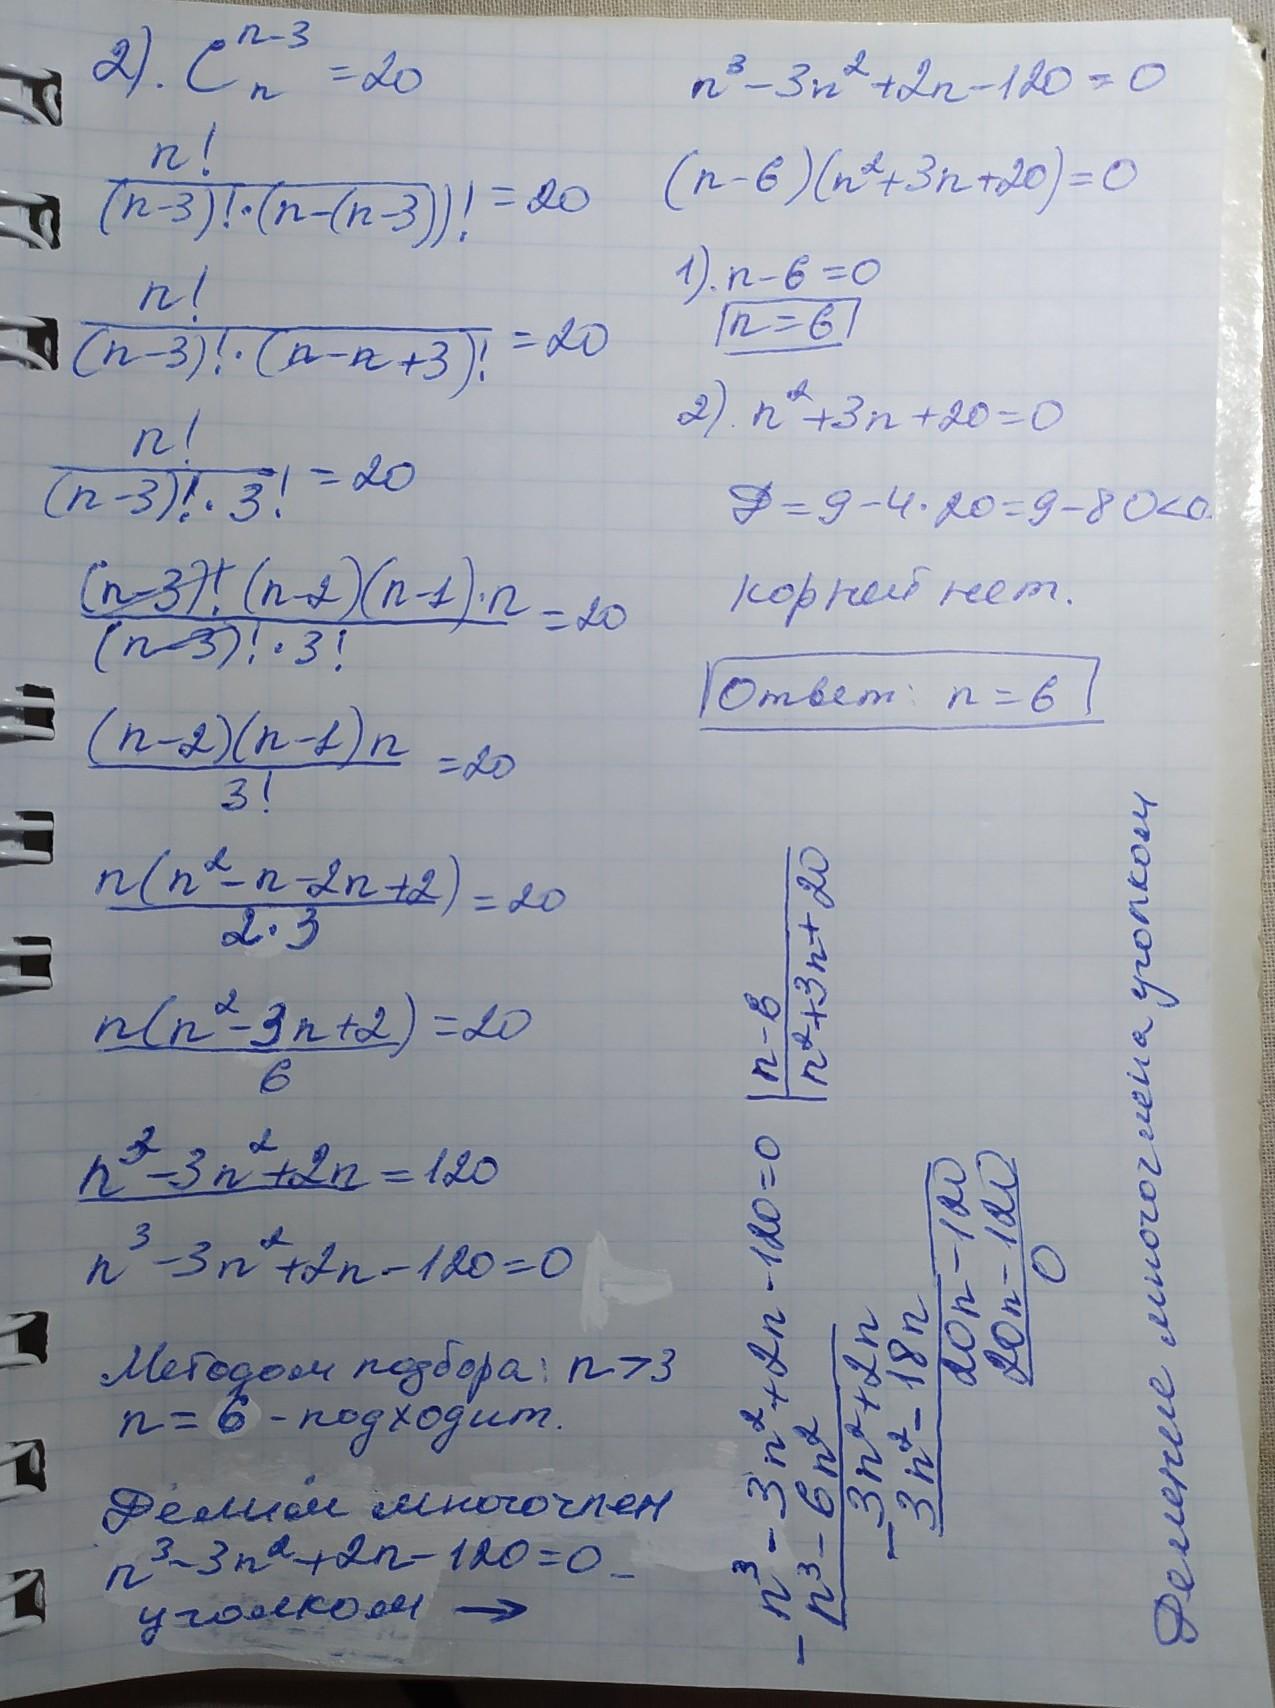 2). C_n^{n-3} = 20
n! / ((n-3)!·(n-(n-3))!) = 20
n! / ((n-3)!·(n-n+3)!) = 20
n! / ((n-3)!·3!) = 20
(n-3)!(n-2)(n-1)·n / ((n-3)!·3!) = 20
(n-2)(n-1)n / 3! = 20
n(n²-n-2n+2) / (2·3) = 20
n(n²-3n+2) / 6 = 20
n³-3n²+2n = 120
n³-3n²+2n-120=0
Методом подбора: n>3
n=6 - подходит.
Делим многочлен
n³-3n²+2n-120=0 -
уголком →
n³-3n²+2n-120=0
(n-6)(n²+3n+20)=0
1). n-6=0
n=6
2). n²+3n+20=0
D=9-4·20=9-80<0.
корней нет.
Ответ: n=6
- n³-3n²+2n-120=0 | n-6
n³-6n² | n²+3n+20
- 3n²+2n
3n²-18n
20n-120
20n-120
0
Деление многочлена уголком